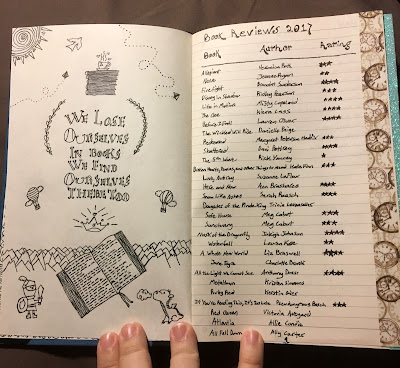 We Lose
Ourselves
In Books
We Find
Ourselves
There Too
Book Reviews 2017
Book Author Rating
Allegiant Veronica Roth ***
Jeanne **
Firefight Brandon Sanderson ****
Ridley Pearson ***
Life in Motion Misty Copeland ****
The One Kiera Cass ****
Before I Fall Lauren Oliver ***
The Wicked Will Rise Danielle Paige
Redeemed Margaret Peterson Haddix ***
Shattered Dani Pettrey ****
The 5th Wave Rick Yancey *
Katie Finn ***
Lucky Suzanne LaFleur
Here and Now Ann Brashares ****
Snow Like Ashes Sara Raasch ****
Daughter of the Pirate King Tricia Levenseller
Safe House Meg Cabot ****
Sanctuary Meg Cabot ***
Mark of the Dragonfly Jaleigh Johnson ****
Waterfall Lauren Kate **
A Whole New World Liz Braswell ****
Jane Eyre Charlotte Brontë
All the Light We Cannot See Anthony Doerr ****
Kristen Simmons
Ruby Red Kerstin Gier
If You're Reading This, It's Too Late Pseudonymous Bosch ***
Red Queen Victoria Aveyard
Atlantia Allie Condie
All Fall Down Ally Carter